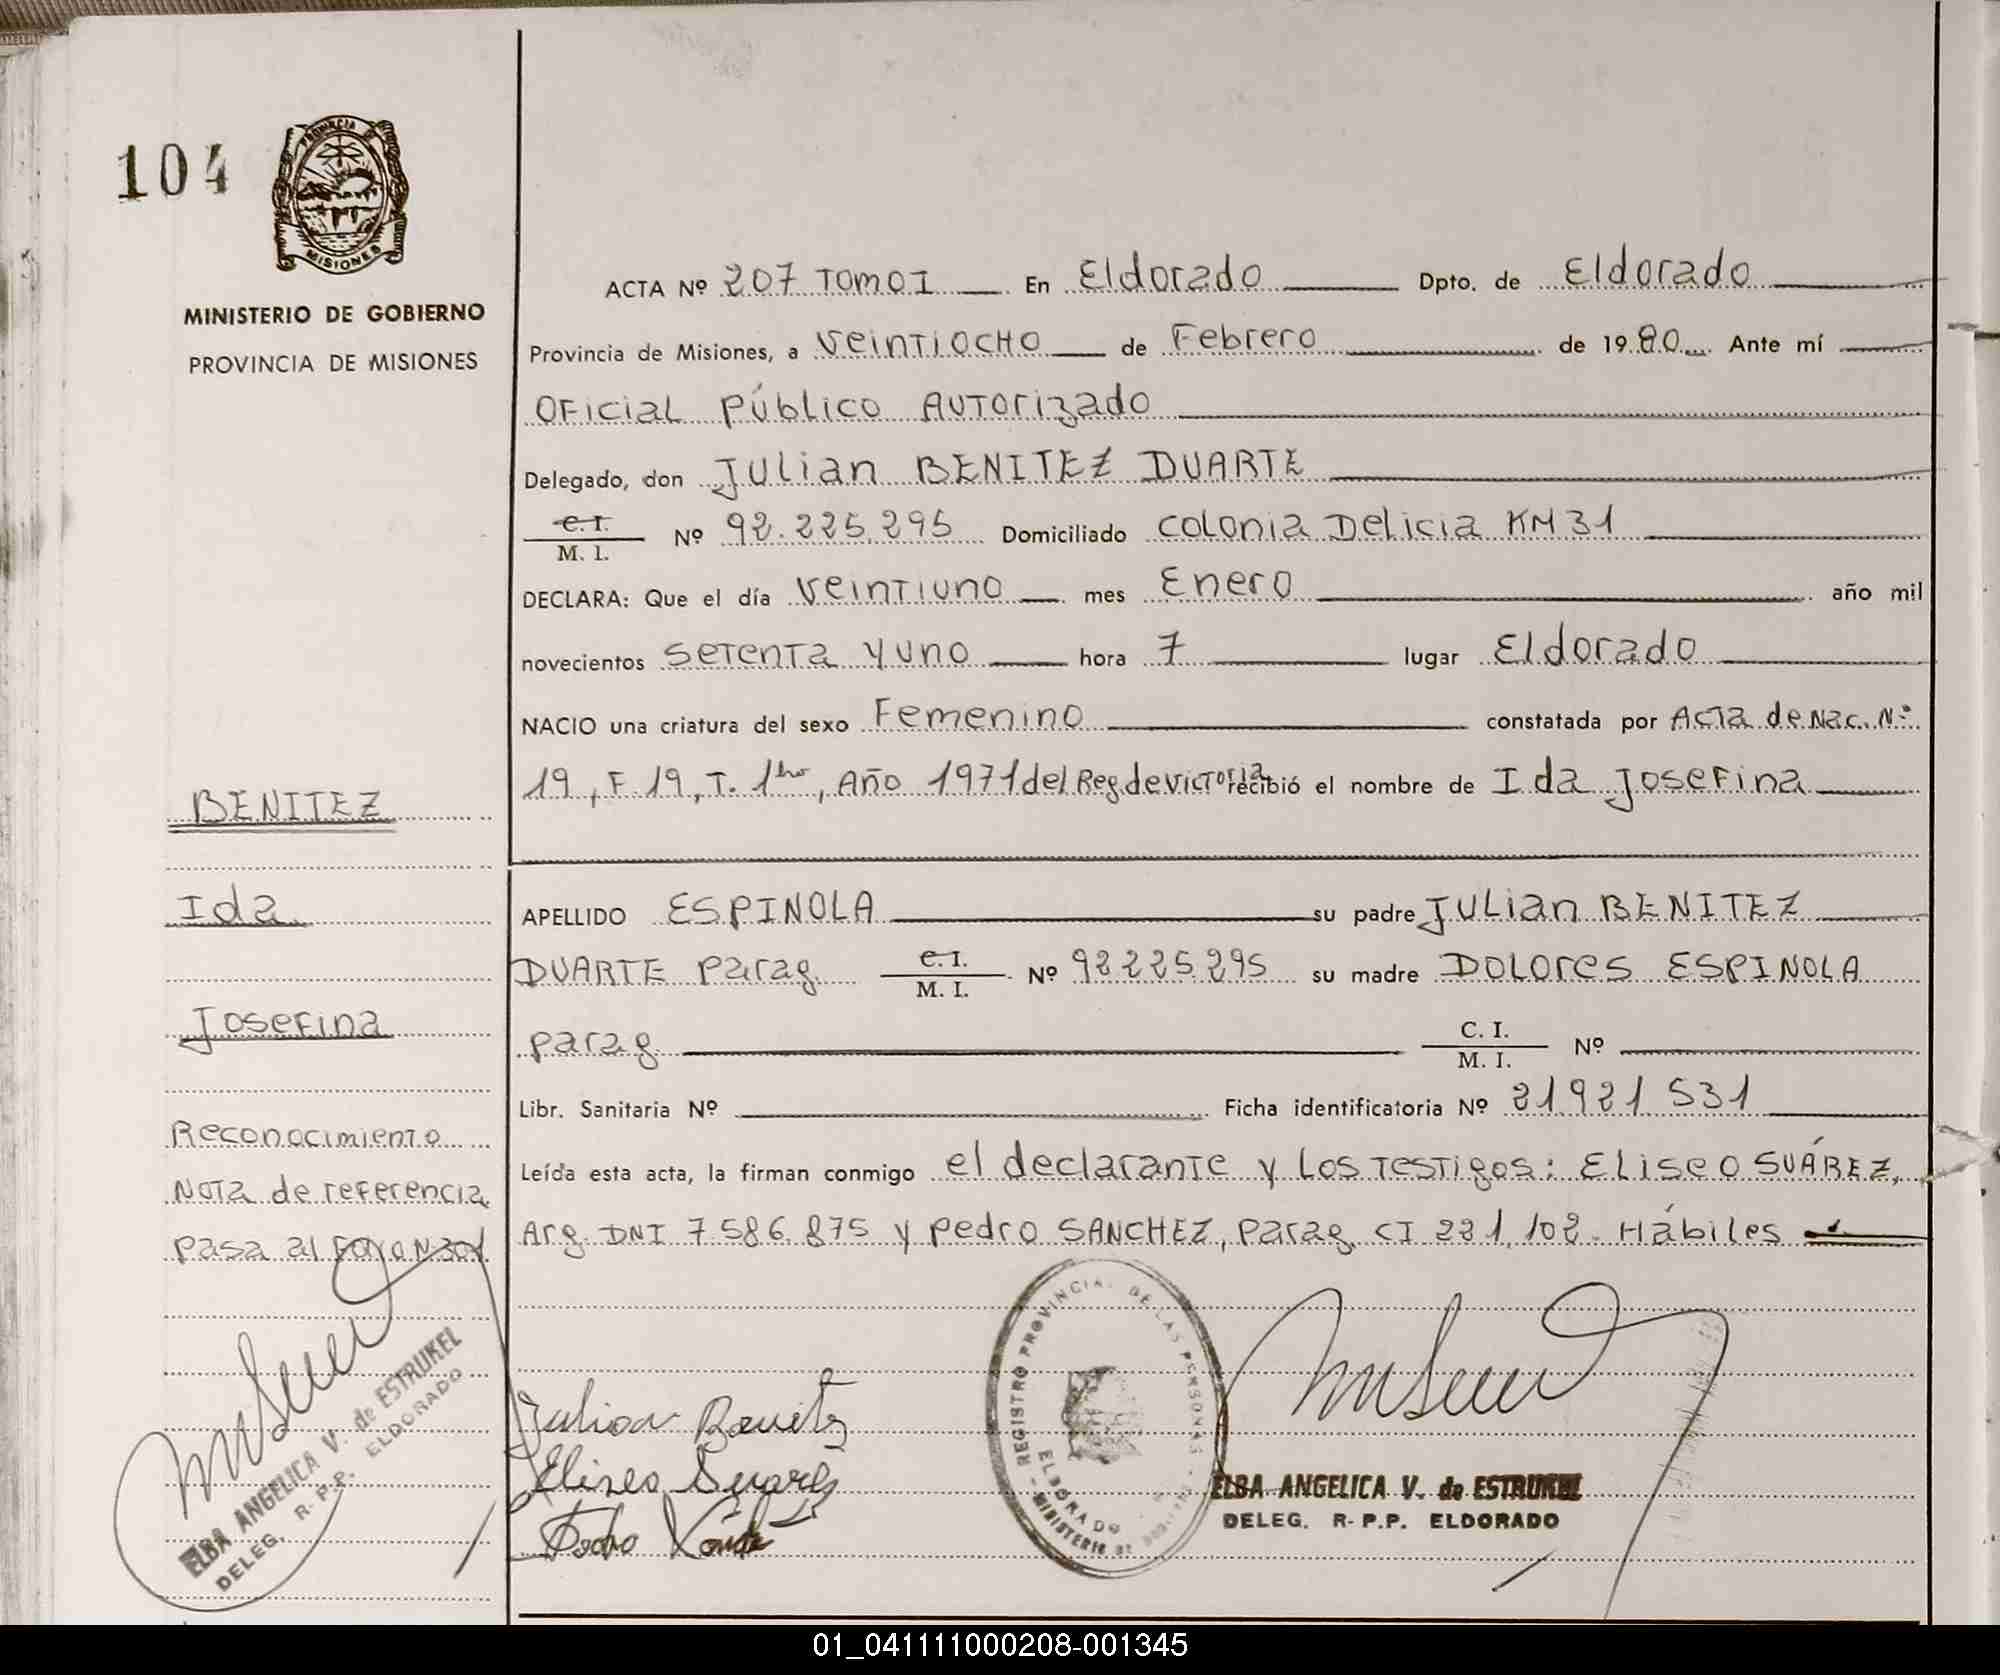 104
PROVINCIA DE
MISIONES
MINISTERIO DE GOBIERNO
PROVINCIA DE MISIONES
ACTA Nº 207 Tomo I En Eldorado Dpto. de Eldorado
Provincia de Misiones, a veintiocho de Febrero de 1980 Ante mí
Oficial Público Autorizado
Delegado, don Julian BENITEZ DUARTE
C. I.
M. I. Nº 92.225.295 Domiciliado Colonia Delicia KM 31
DECLARA: Que el día veintiuno mes Enero año mil
novecientos setenta y uno hora 7 lugar Eldorado
NACIO una criatura del sexo Femenino constatada por Acta de Nac. Nº
19, F. 19, T. 1ro, Año 1971 del Reg. de Victoria recibió el nombre de Ida Josefina
APELLIDO ESPINOLA su padre Julian BENITEZ
DUARTE Parag. C. I.
M. I. Nº 92.225.295 su madre DOLORES ESPINOLA
parag. C. I.
M. I. Nº
Libr. Sanitaria Nº Ficha identificatoria Nº 21.921.531
Leída esta acta, la firman conmigo el declarante y los testigos: Eliseo SUÁREZ,
Arg. DNI 7.586.875 y Pedro SANCHEZ, Parag. CI 221.102. Hábiles
BENITEZ
Ida
Josefina
Reconocimiento
Nota de referencia
pasa al
ELBA ANGELICA V. de ESTRUKEL
DELEG. R. P.P. ELDORADO
Julian Benitez
Eliseo Suarez
Pedro
REGISTRO PROVINCIAL DE LAS PERSONAS
ELDORADO
MINISTERIO DE
ELBA ANGELICA V. de ESTRUKEL
DELEG. R. P.P. ELDORADO
01_041111000208-001345